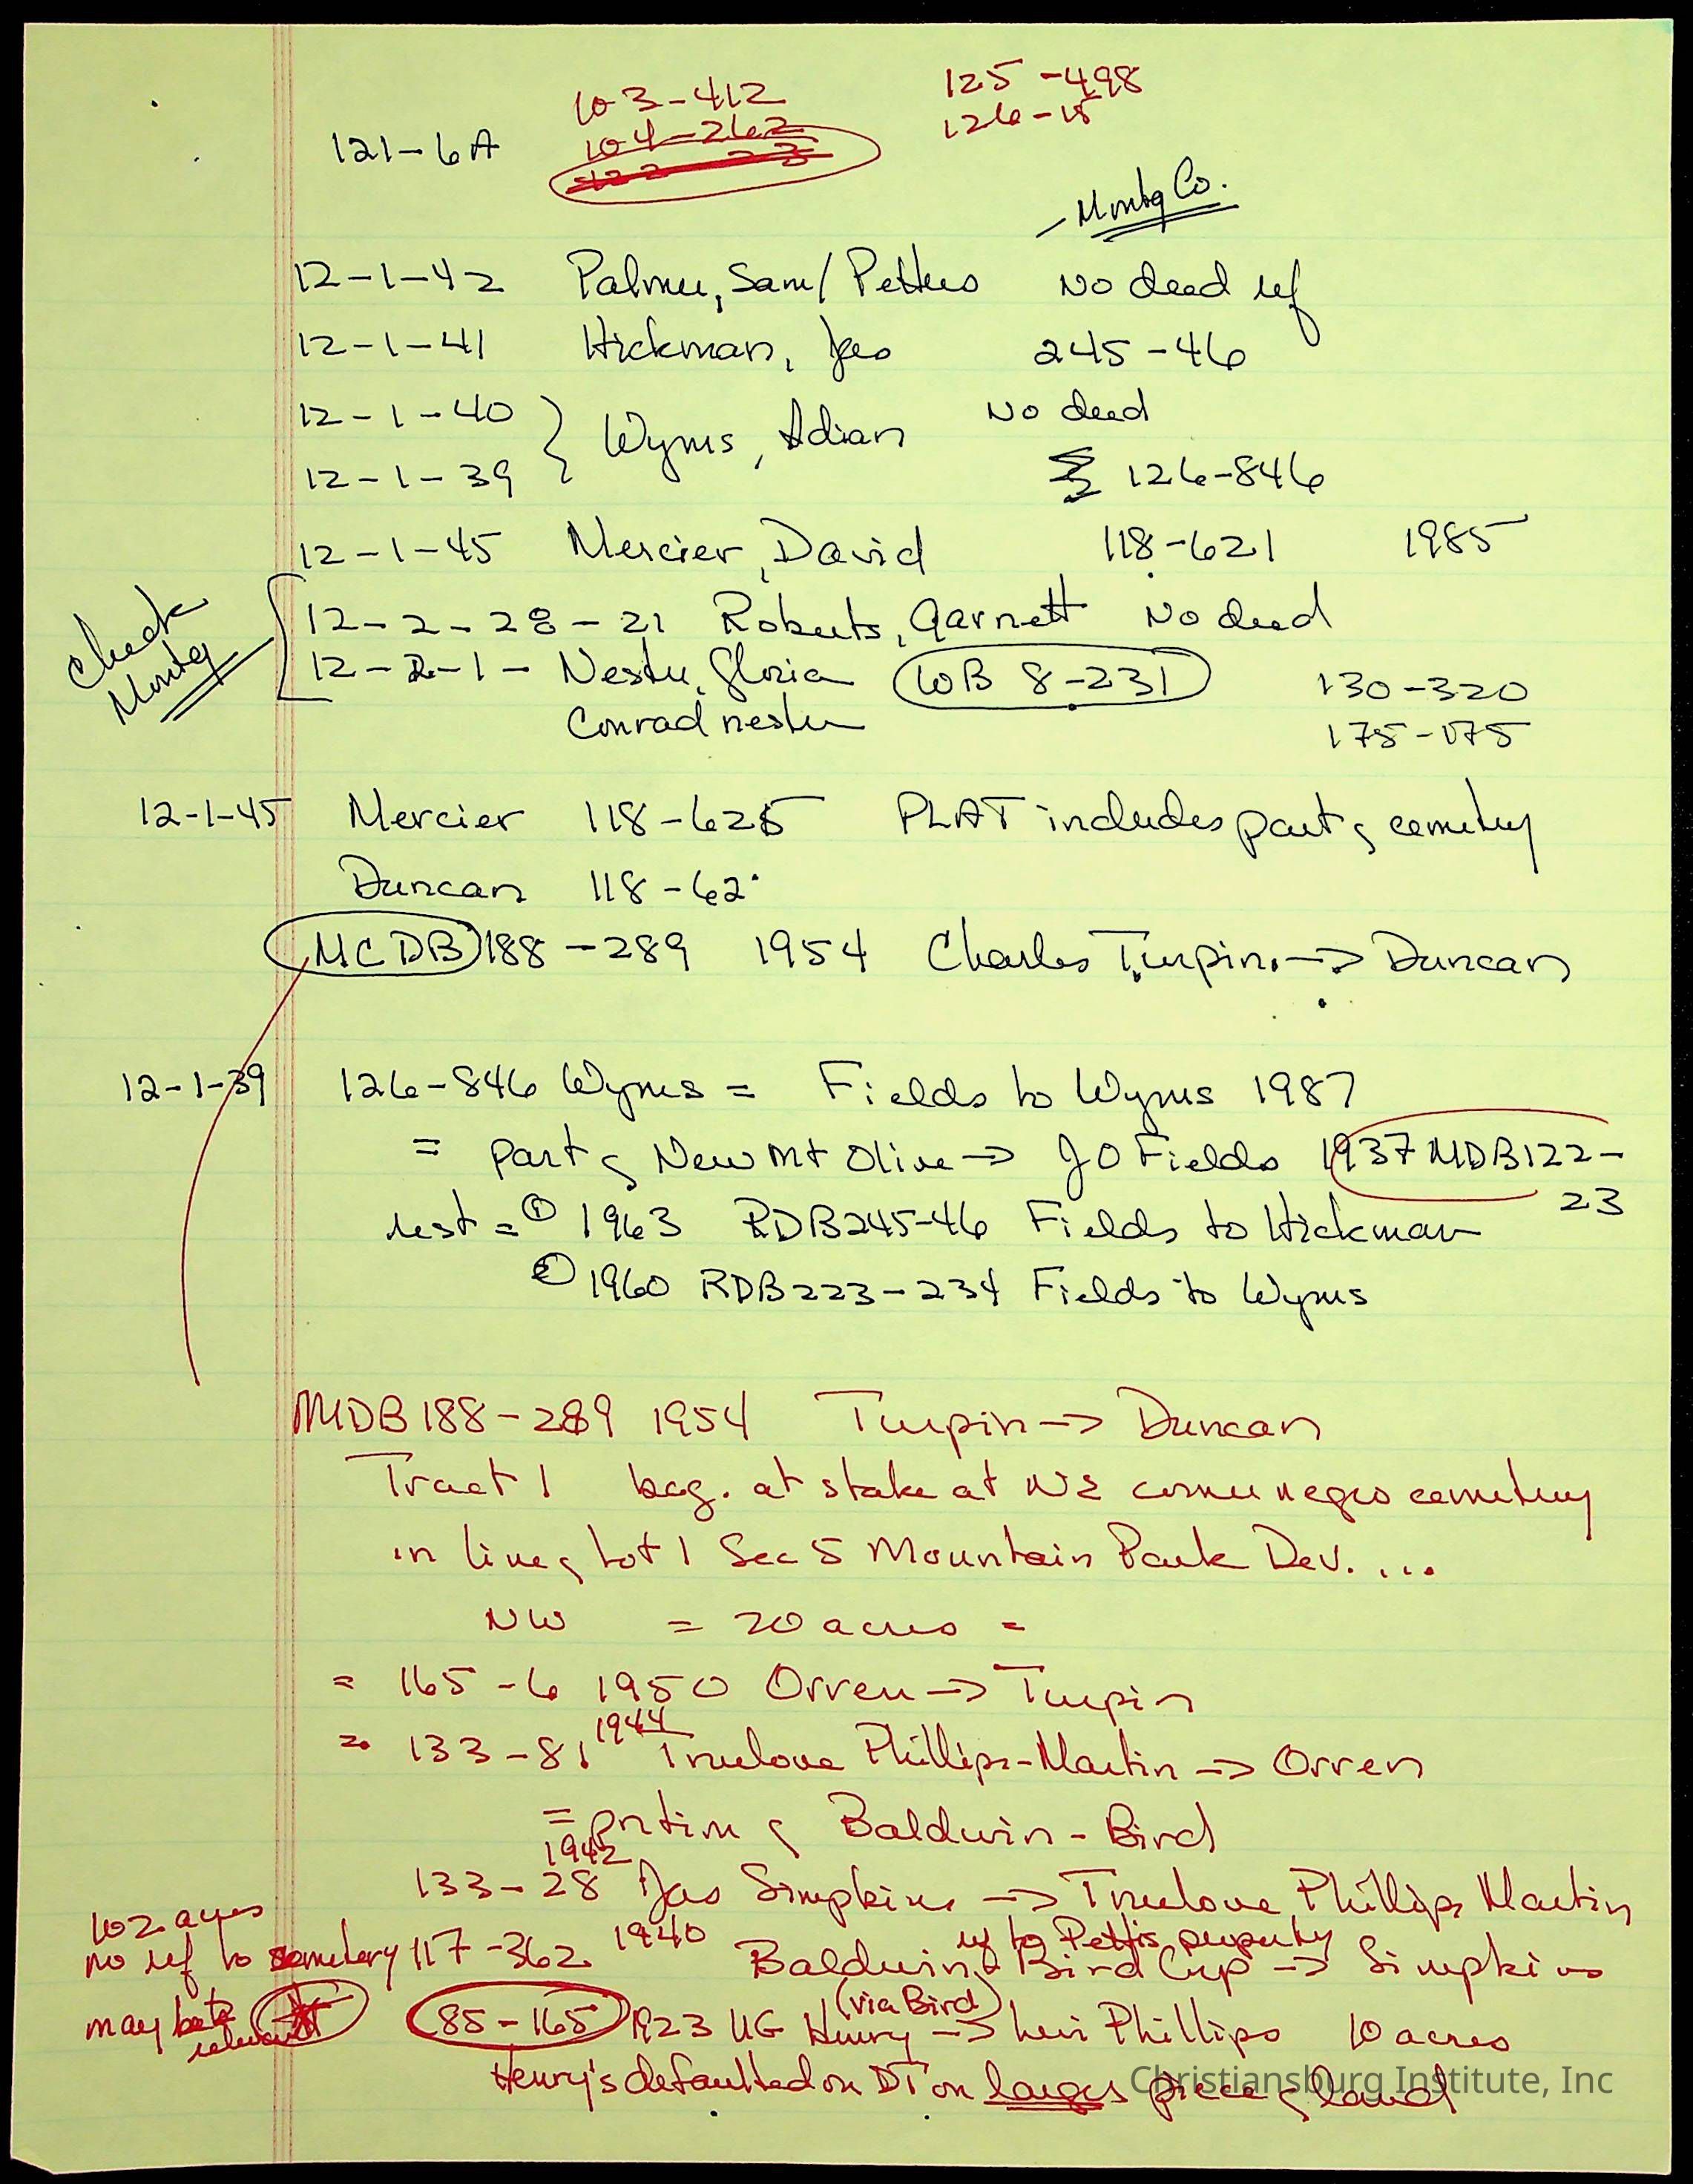 103-412
125-498
104-262
126-15
121-6A
Montg Co.
12-1-42 Palmer, Sam/Pettus No deed ref
12-1-41 Hickman, Jas 245-46
12-1-40 No deed
Wyms, Adian
12-1-39 126-846
12-1-45 Mercier, David 118-621 1985
Check
Montg
12-2-28-21 Roberts, Garnett No deed
12-2-1- Nester, Gloria WB 8-231 130-320
Conrad nester 175-175
12-1-45 Mercier 118-625 PLAT includes part of cemetery
Duncan 118-62
MCDB 188-289 1954 Charles Turpin -> Duncan
12-1-39 126-846 Wyms = Fields to Wyms 1987
= part of New Mt Olive -> JO Fields 1937 MDB122-
23
rest = ① 1963 RDB245-46 Fields to Hickman
② 1960 RDB223-234 Fields to Wyms
MDB188-289 1954 Turpin -> Duncan
Tract 1 beg. at stake at NE corner negro cemetery
in line of Lot 1 Sec 5 Mountain Park Dev. ....
NW = 20 acres =
= 165-6 1950 Orren -> Turpin
= 133-81 1944 Truelove Phillips-Martin -> Orren
= portion of Baldwin-Bird
1942
133-28 Jas Simpkins -> Truelove Phillips Martin
102 acres
ref to Pettis property
no ref to cemetery 117-362 1940 Baldwin & Bird Corp -> Simpkins
may be relevant 85-165 1923 UG Henry (via Bird) -> Levi Phillips 10 acres
Henry's defaulted on DT on larger piece of land
Christiansburg Institute, Inc